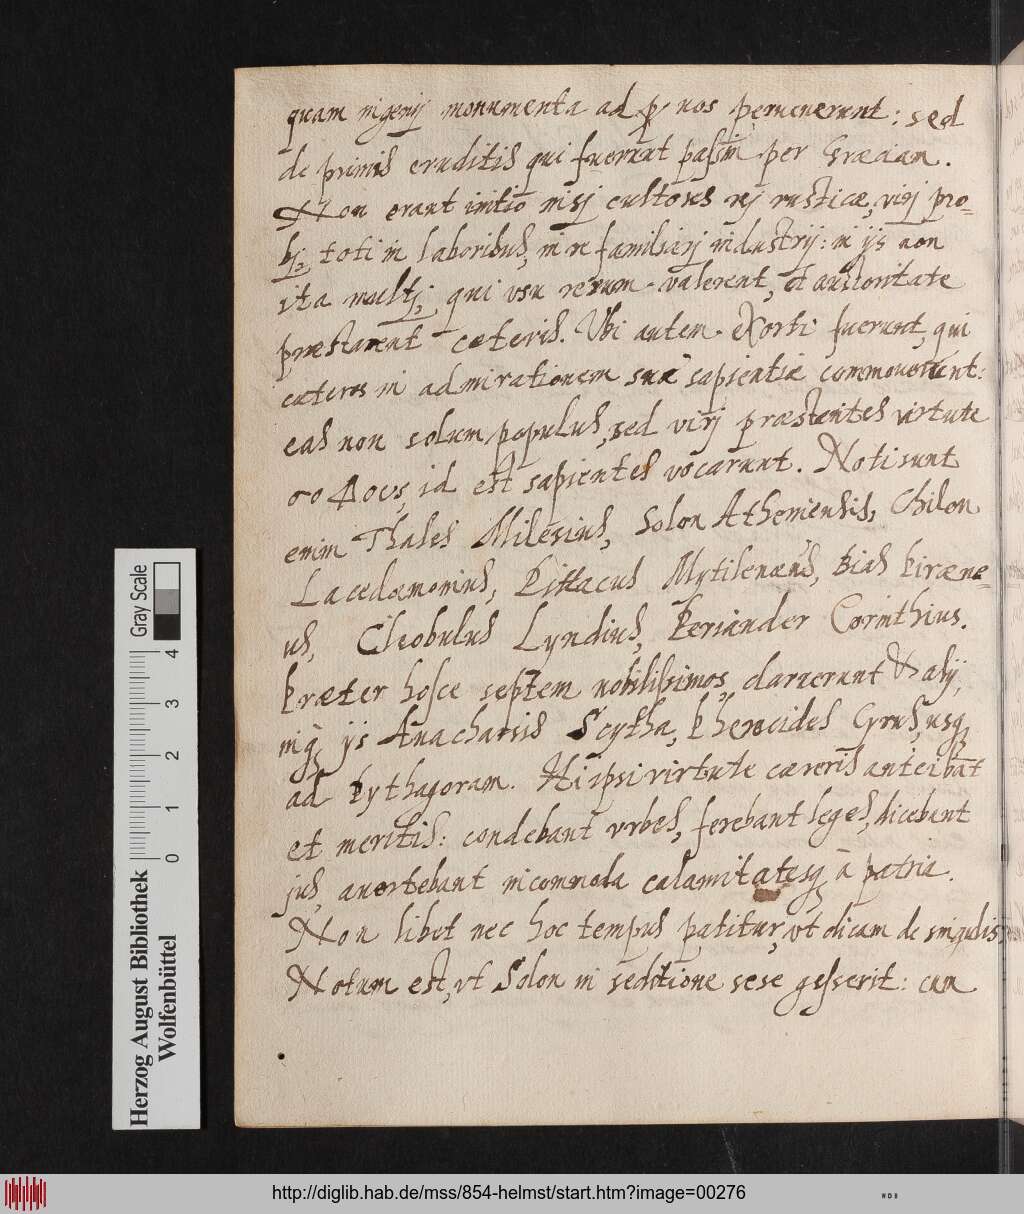 quam ingenij monumenta ad nos peruenerunt: sed
de primis eruditis qui fuerunt passim per Græciam.
Non erant initio nisj cultores rej rusticæ, virj pro-
bj, toti in laboribus, in re familiarj industrij: in ijs non
ita multj, qui vsu rerum valerent, et auctoritate
præstarent cæteris. Vbi autem exorti fuerunt, qui
cæteros in admirationem suæ sapientiæ commouerunt:
eas non solum populus, sed virj præstantes virtute
σοφους, id est sapientes vocarunt. Noti sunt
enim Thales Milesius, Solon Atheniensis, Chilon
Lacedæmonius, Pittacus Mytilenæus, Bias Piræne-
us, Cleobulus Lyndius, Periander Corinthius.
Præter hosce septem nobilissimos, claruerunt & alij,
inq ijs Anacharsis Scytha, Pherecides Cyrus, usq
ad Pythagoram. Hi ipsi virtute cæteris anteibāt
et meritis: condebant vrbes, ferebant leges, dicebant
jus, auertebant incommoda calamitatesq à patria.
Non libet nec hoc tempus patitur, vt dicam de singulis
Notum est, vt Solon in seditione sese gesserit: cum
Gray Scale
0 1 2 3 4
Herzog August Bibliothek
Wolfenbüttel
http://diglib.hab.de/mss/854-helmst/start.htm?image=00276